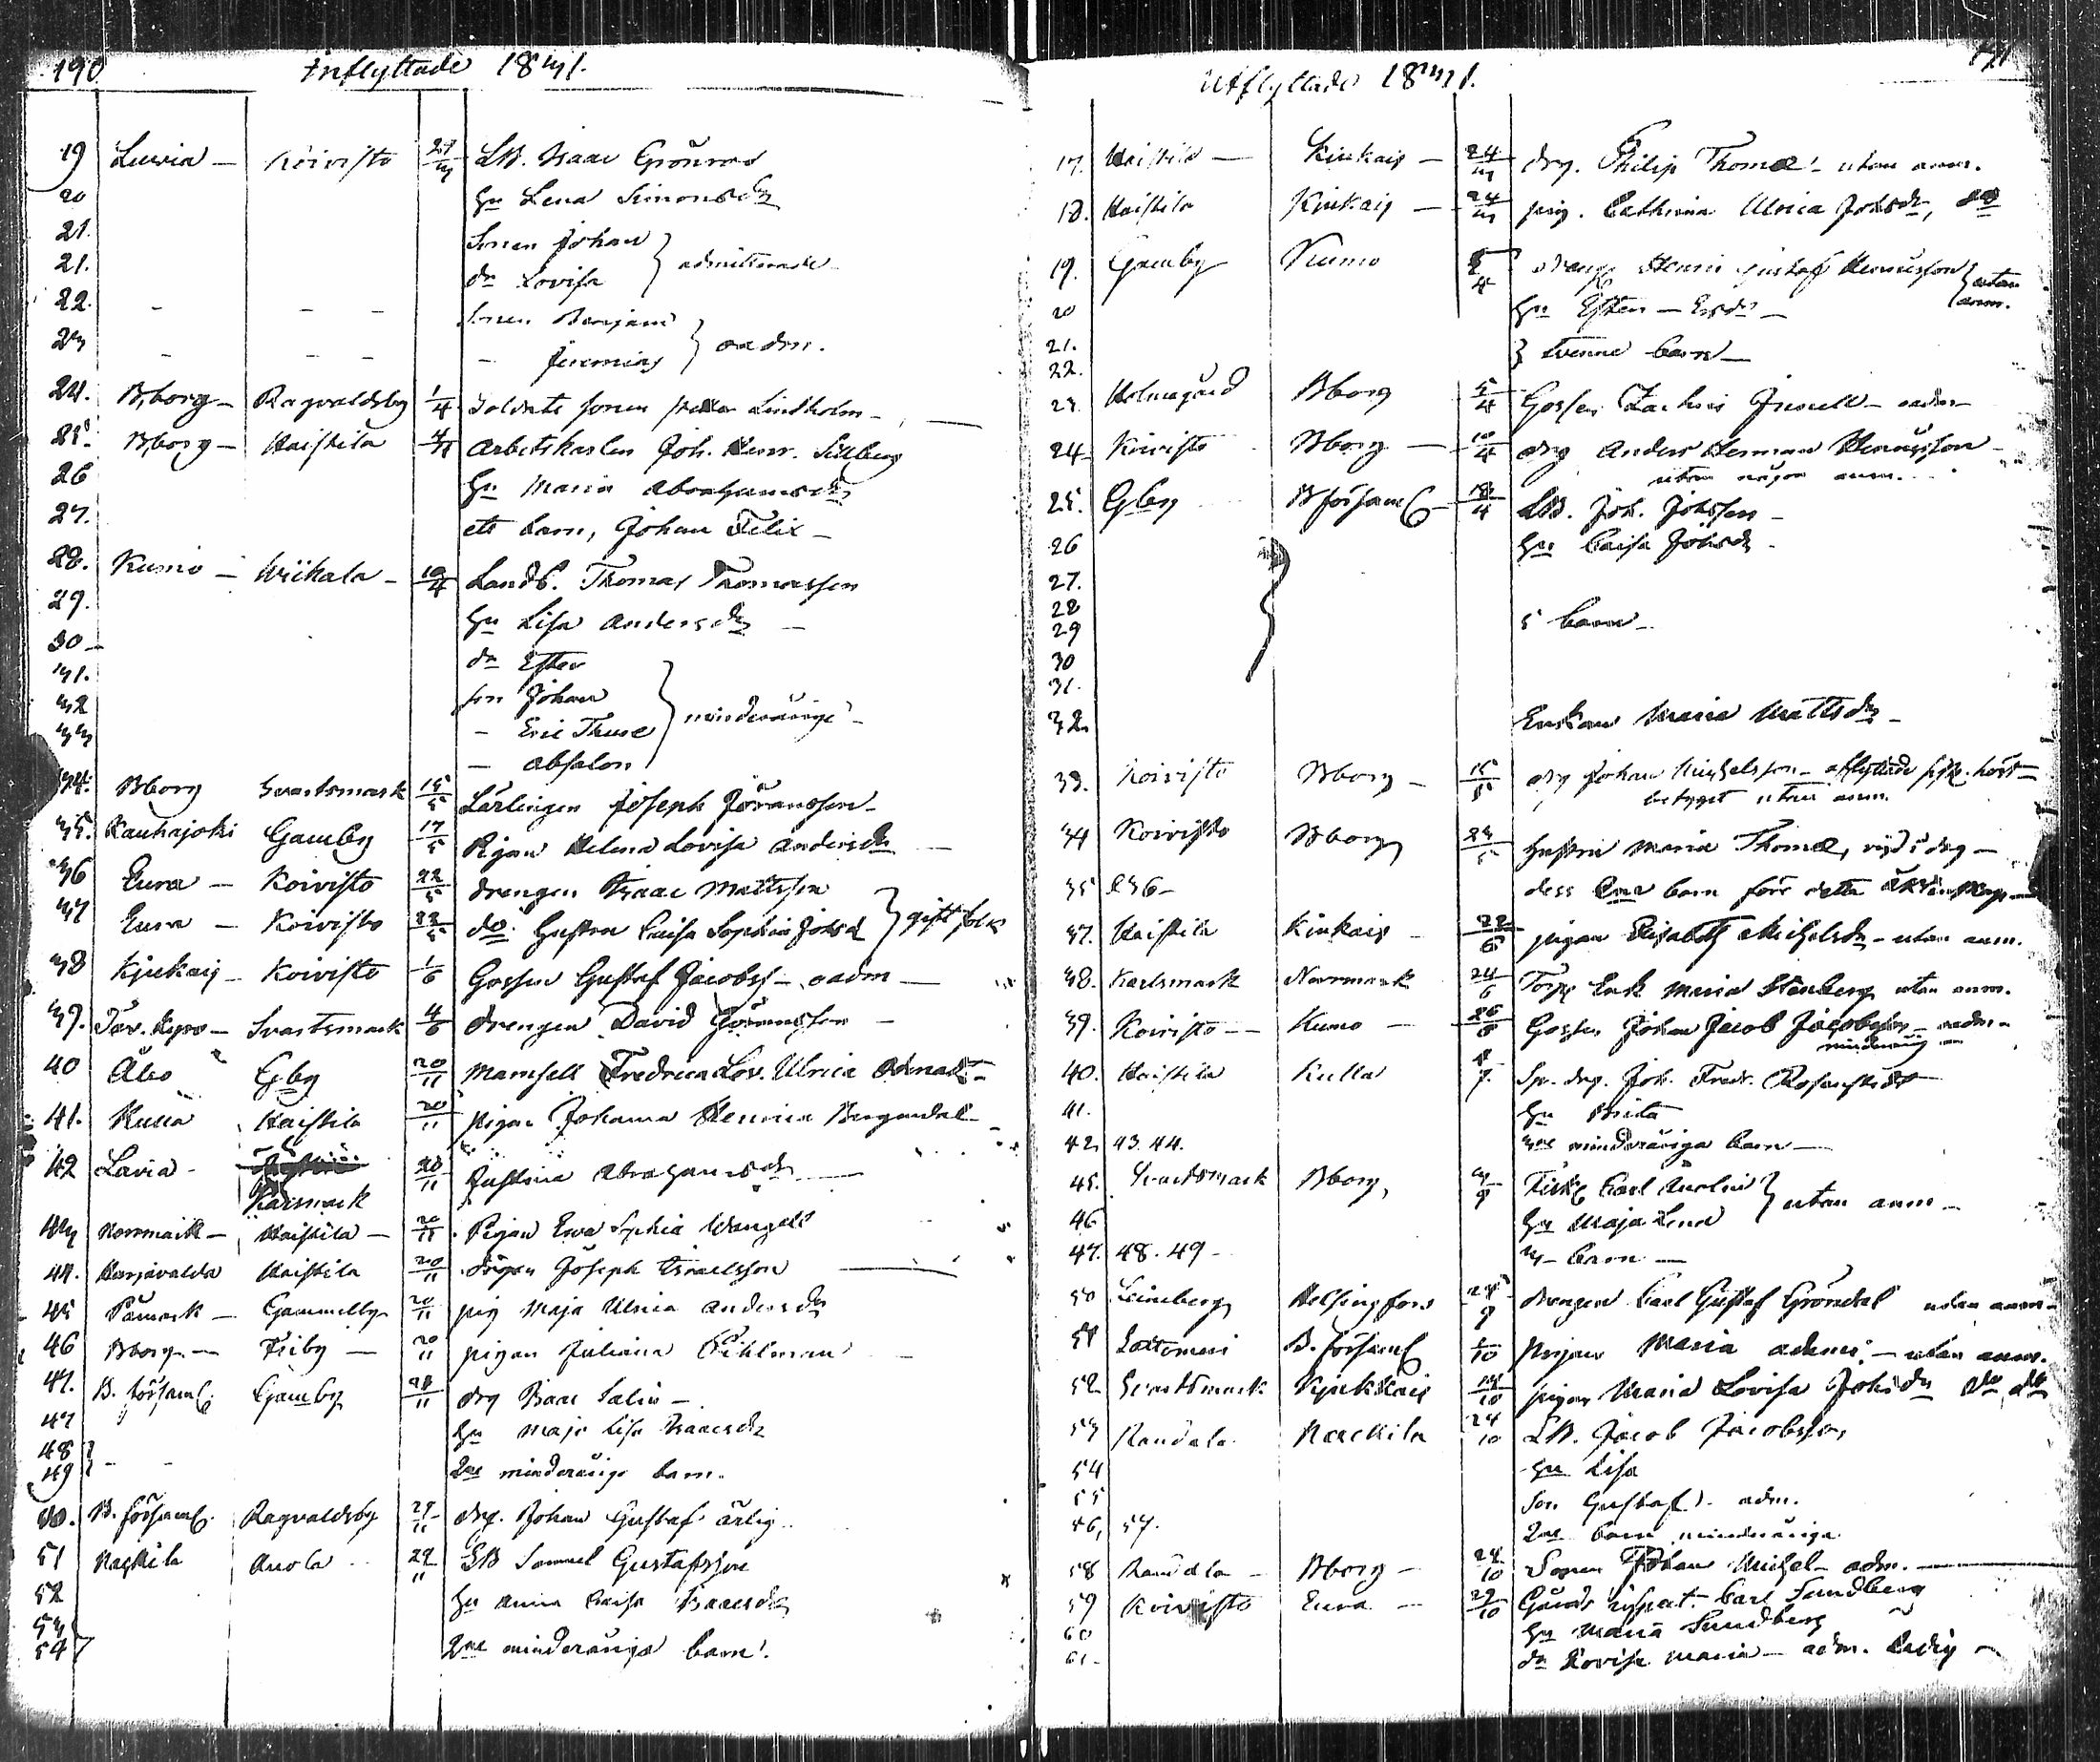 190 Inflyttade 1831.
19 Luvia – Koivisto 27/3 LB. Isaac Grönroos
20 Hu Lena Simonsdr
21. Sonen Johan
21. dr Lovisa } admitterade
22. – – – Sonen Benjam
23 – – – – Jeremias } oadm.
24. Bborg – Ragvaldsby 1/4 Soldats sonen Petter Lindholm –
25. Bborg – Haistila 4/4 Arbetskarlen Joh. Henr. Sedberg
26 Hu Maria Abrahamsdr
27. ett barn, Johan Felix –
28. Kumo – Wiikala – 19/4 Landb. Thomas Thomasson
29. Hu Lisa Andersdr –
30 – dr Ester
31. son Johan
32 – Eric Thure } minderårige –
33 – Absalon
34. Bborg Svartsmark 15/5 Lärlingen Joseph Göransson –
35. Kauhajoki Gamby 17/5 Pigan Helena Lovisa Andersdr –
36 Eura – Koivisto 22/5 drengen Isaac Mattsson
37 Eura – Koivisto 22/5 do. Hustru Caisa Sophia Johsd } gift folk
38 Kjukais – Koivisto 1/6 Gossen Gustaf Jacobss – oadm –
39. Tav. Kyro – Svartsmark 4/6 drengen David Göransson –
40 Åbo Gby 20/11 Mamsell Fredrica Lov. Ulrica
41. Kulla Haistila 20/11 pigan Johanna Henrica Bergendal –
42 Lavia – Karsmark 20/11 Justina Abrahamsdr –
43 Norrmark – Haistila – 20/11 Pigan Eva Sophia Wangell
44. Harjavalda Haistila 20/11 drgen Joseph Israelsson –
45 Påmark – Gammelby 20/11 pig Maja Ulrica Andersdr
46 Bborg – Friby – 20/11 pigan Juliana Pihlman –
47. B. församl. Gamby 28/11 drg Isaac Salin –
47 Hu Maja Lisa Isaacsdr
48 } – –
49 2ne minderåriga barn.
50. B. församl. Ragvaldsby 27/11 drg. Johan Gustaf Ärlig
51 Nackila Anola 29/11 LB Samuel Gustafsson
52 Hu Anna Caisa Isaacsdr
53
54 } 2ne minderåriga barn.
Utflyttade 1831. 191
17. Haistila – Kiukais – 24/3 drg. Philip Thomæ – utan anm.
18. Haistila Kjukais – 24/3 pig. Cathrina Ulrica Johsdr, do
19. Gamby Kumo 5/4 dreng Henric Gustaf Henricsson } utan anm.
20 Hu Ester – Ersdr –
21.
22. } tvenne barn –
23. Holmgård Bborg 5/4 Gossen Zachris – oadm –
24. Koivisto Bborg – 10/4 drg Anders Herman Henricsson –
utan någon anm.
25. Gby B församl – 18/4 LB. Joh. Johsson –
26 Hu Caisa Johsdr –
27.
28
29 5 barn –
30
31.
32 Enkan Maria Mattsdr –
33. Koivisto Bborg – 15/5 drg Johan Michelsson – afflyttade sistl. höst –
betyget utan anm.
34 Koivisto Bborg 23/5 Hustru Maria Thomæ,
35 & 36 – dess barn före detta
37. Haistila Kiukais – 22/6 pigan Elisabeth Michelsdr – utan anm.
38. Karlsmark Norrmark 24/6 Torp Enk Maria Stenberg utan anm.
39. Koivisto – Kumo – 26/6 Gossen Johan Jacob Jacobsson – oadm –
minderårig
40. Haistila Kulla 4/7. Sp. drg. Joh. Fredr. Rosenstedt
41. Hu Brita
42 43. 44. 3ne minderåriga barn –
45. Svartsmark Bborg, 3/9 Carl } utan anm –
46 Hu Maja Lena
47. 48. 49 – 3 – barn –
50 Leineberg Helsingfors 24/9 drengen Carl Gustaf Gröndal utan anm –
51 Lattomeri B. församl 6/10 Pigan Maria – utan anm.
52 Svartsmark Kjukkais 14/10 pigan Maria Lovisa Johsdr do do
53 Randala Nackila 24/10 LB. Jacob Jacobsson
54 Hu Lisa
55 Son Gustaf – adm.
56, 57. 2ne barn minderåriga
58 Randala – Bborg – 24/10 Sonen Johan Michel – adm. –
59 Koivisto Eura – 29/10 Carl Sundberg
60 Hu Maria Sundberg
61 – dr Lovisa Maria – adm. ledig –